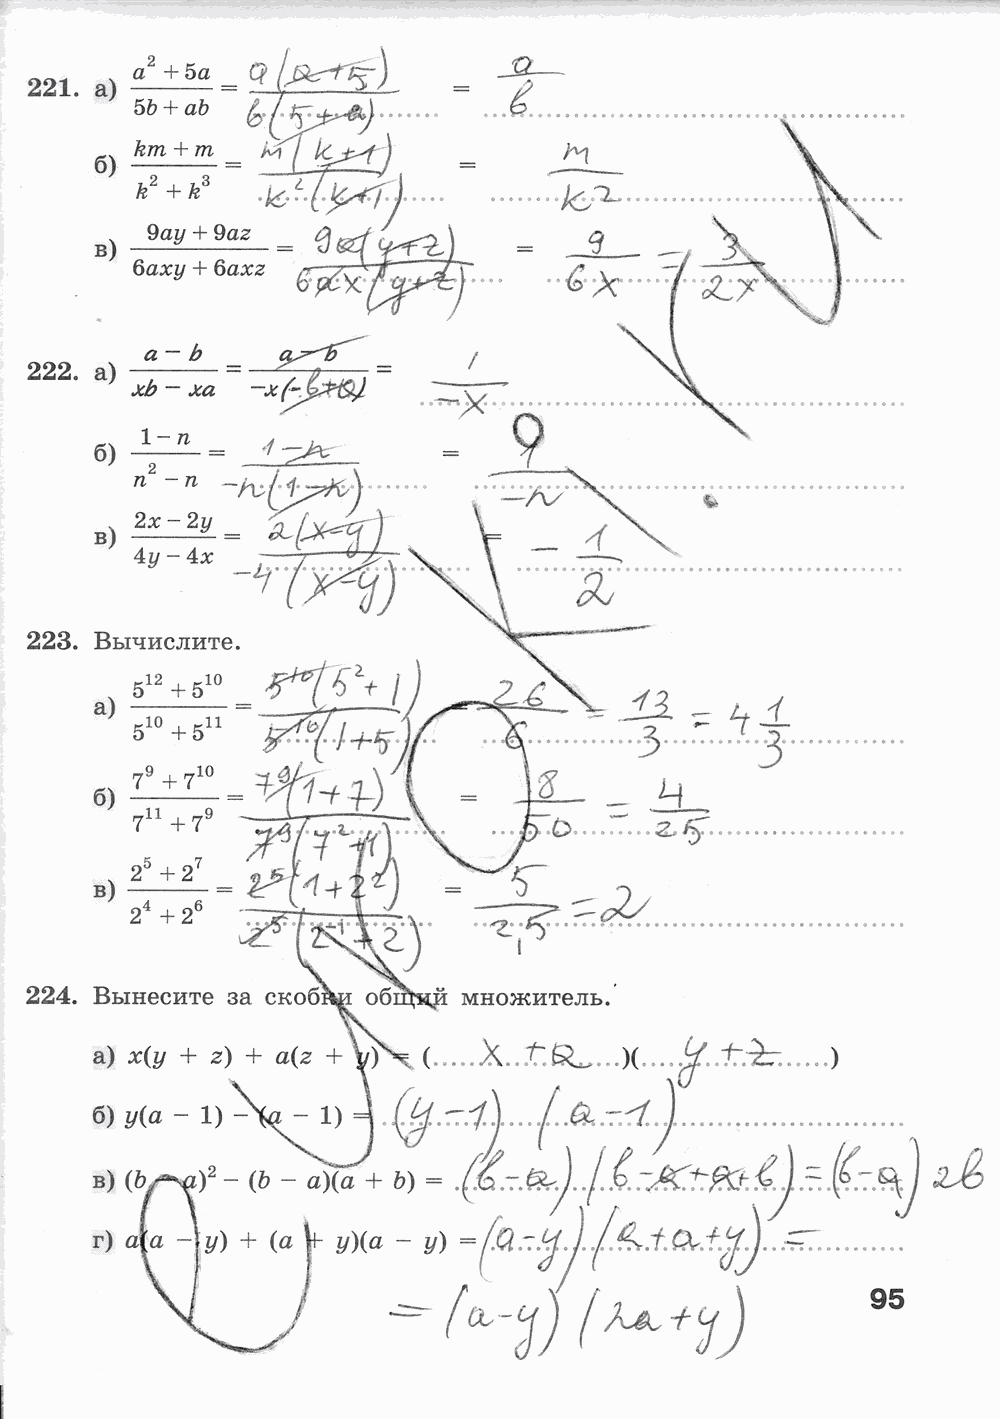 221. а) (a² + 5a)/(5b + ab) = a(a+5)/b(5+a) = a/b
б) (km + m)/(k² + k³) = m(k+1)/k²(k+1) = m/k²
в) (9ay + 9az)/(6axy + 6axz) = 9a(y+z)/6ax(y+z) = 9/6x = 3/2x
222. а) (a − b)/(xb − xa) = (a − b)/−x(−b+a) = 1/−x
б) (1 − n)/(n² − n) = (1−n)/−n(1−n) = 1/−n
в) (2x − 2y)/(4y − 4x) = 2(x−y)/−4(x−y) = − 1/2
223. Вычислите.
а) (5¹² + 5¹⁰)/(5¹⁰ + 5¹¹) = 5¹⁰(5²+1)/5¹⁰(1+5) = 26/6 = 13/3 = 4 1/3
б) (7⁹ + 7¹⁰)/(7¹¹ + 7⁹) = 7⁹(1+7)/7⁹(7²+1) = 8/50 = 4/25
в) (2⁵ + 2⁷)/(2⁴ + 2⁶) = 2⁵(1+2²)/2⁵(2⁻¹+2) = 5/2,5 = 2
224. Вынесите за скобки общий множитель.
а) x(y + z) + a(z + y) = (x + a)(y + z)
б) y(a − 1) − (a − 1) = (y−1) (a−1)
в) (b − a)² − (b − a)(a + b) = (b−a) (b−a+a+b) = (b−a) 2b
г) a(a − y) + (a + y)(a − y) = (a−y) (a+a+y) =
= (a−y) (2a+y)
95